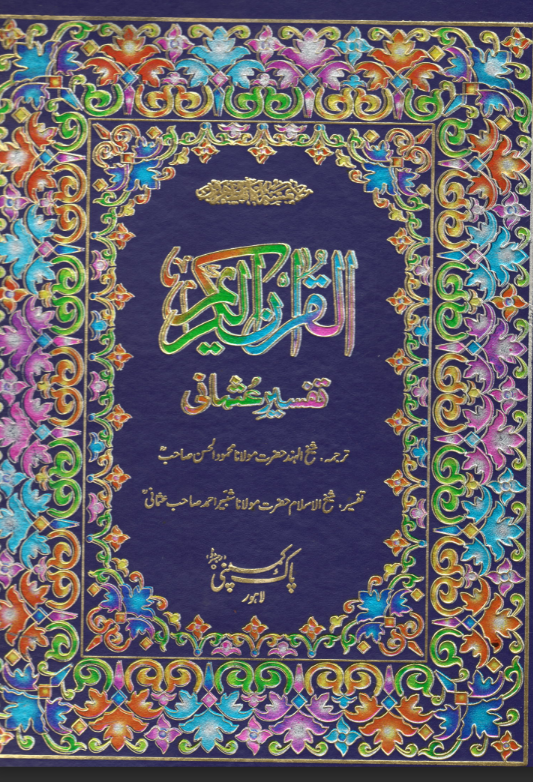 القرآن الكريم
تفسیرِ عثمانی
ترجمہ: شیخ الہند حضرت مولانا محمود الحسن صاحبؒ
تفسیر: شیخ الاسلام حضرت مولانا شبیر احمد صاحب عثمانیؒ
پاک کمپنی
لاہور